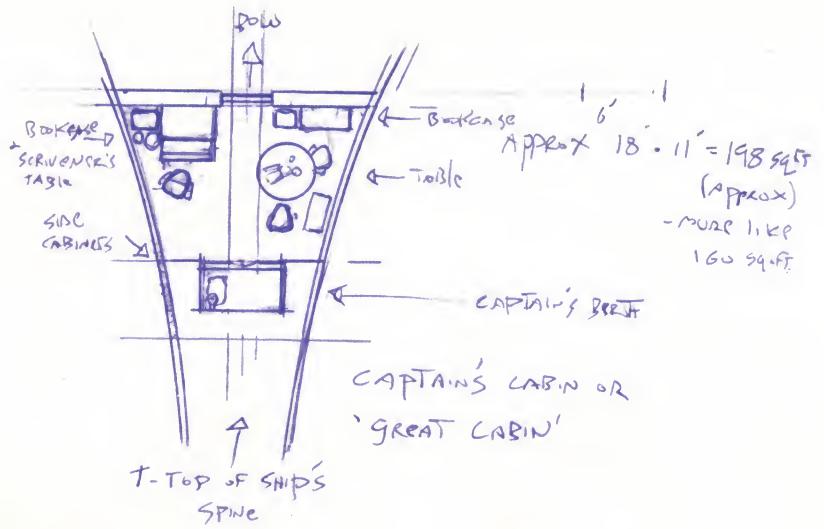 BOW
BOOKCASE
+ SCRIVENER'S
TABLE
SIDE
CABINETS
BOOKCASE
TABLE
6'
APPROX 18' · 11' = 198 SQ FT
(APPROX)
- MORE LIKE
160 SQ.FT
CAPTAIN'S BERTH
CAPTAIN'S CABIN OR
'GREAT CABIN'
T-TOP OF SHIP'S
SPINE